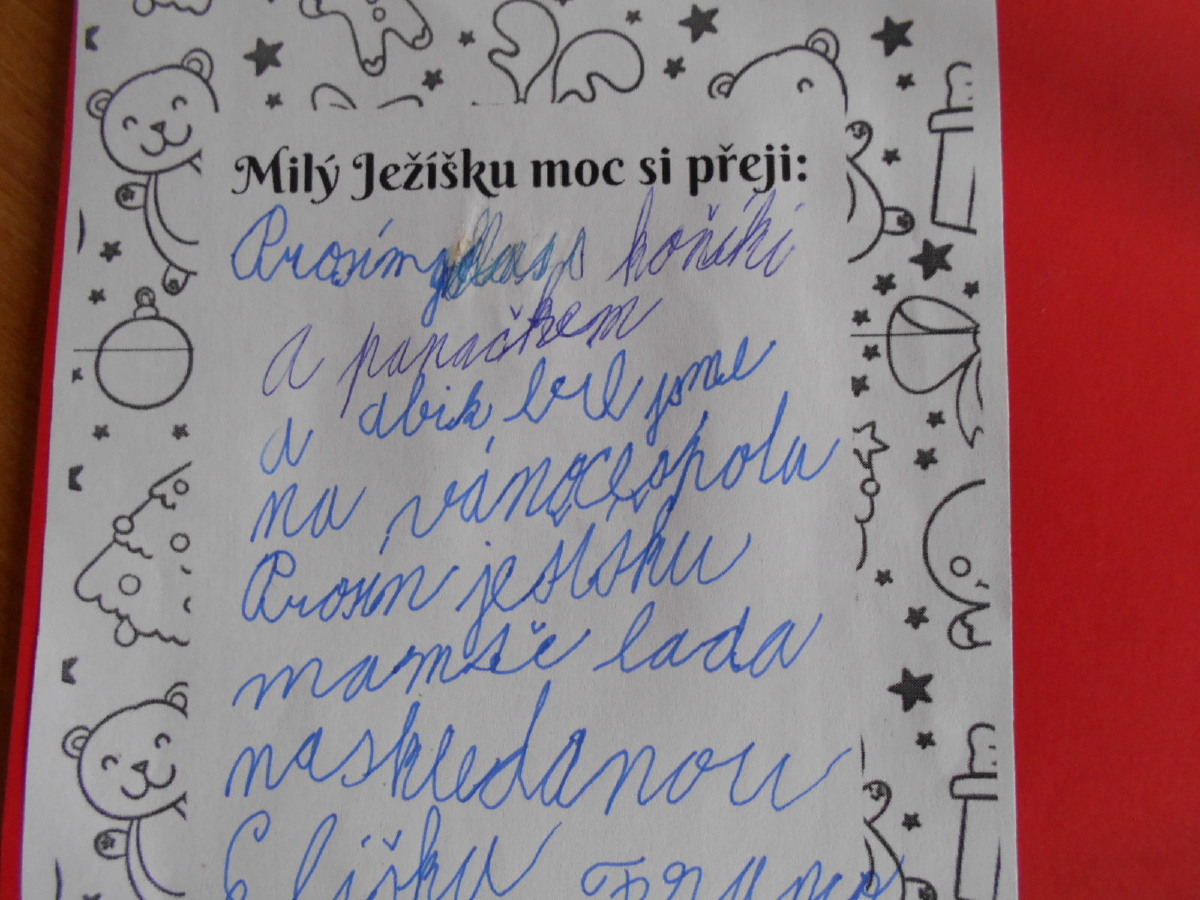 Milý Ježíšku moc si přeji:
Prosím s koňíki
a panačkem
a abik bel jsme
na vánoce spolu
Prosín jesišku
mam še lada
naskledanou
Eliška